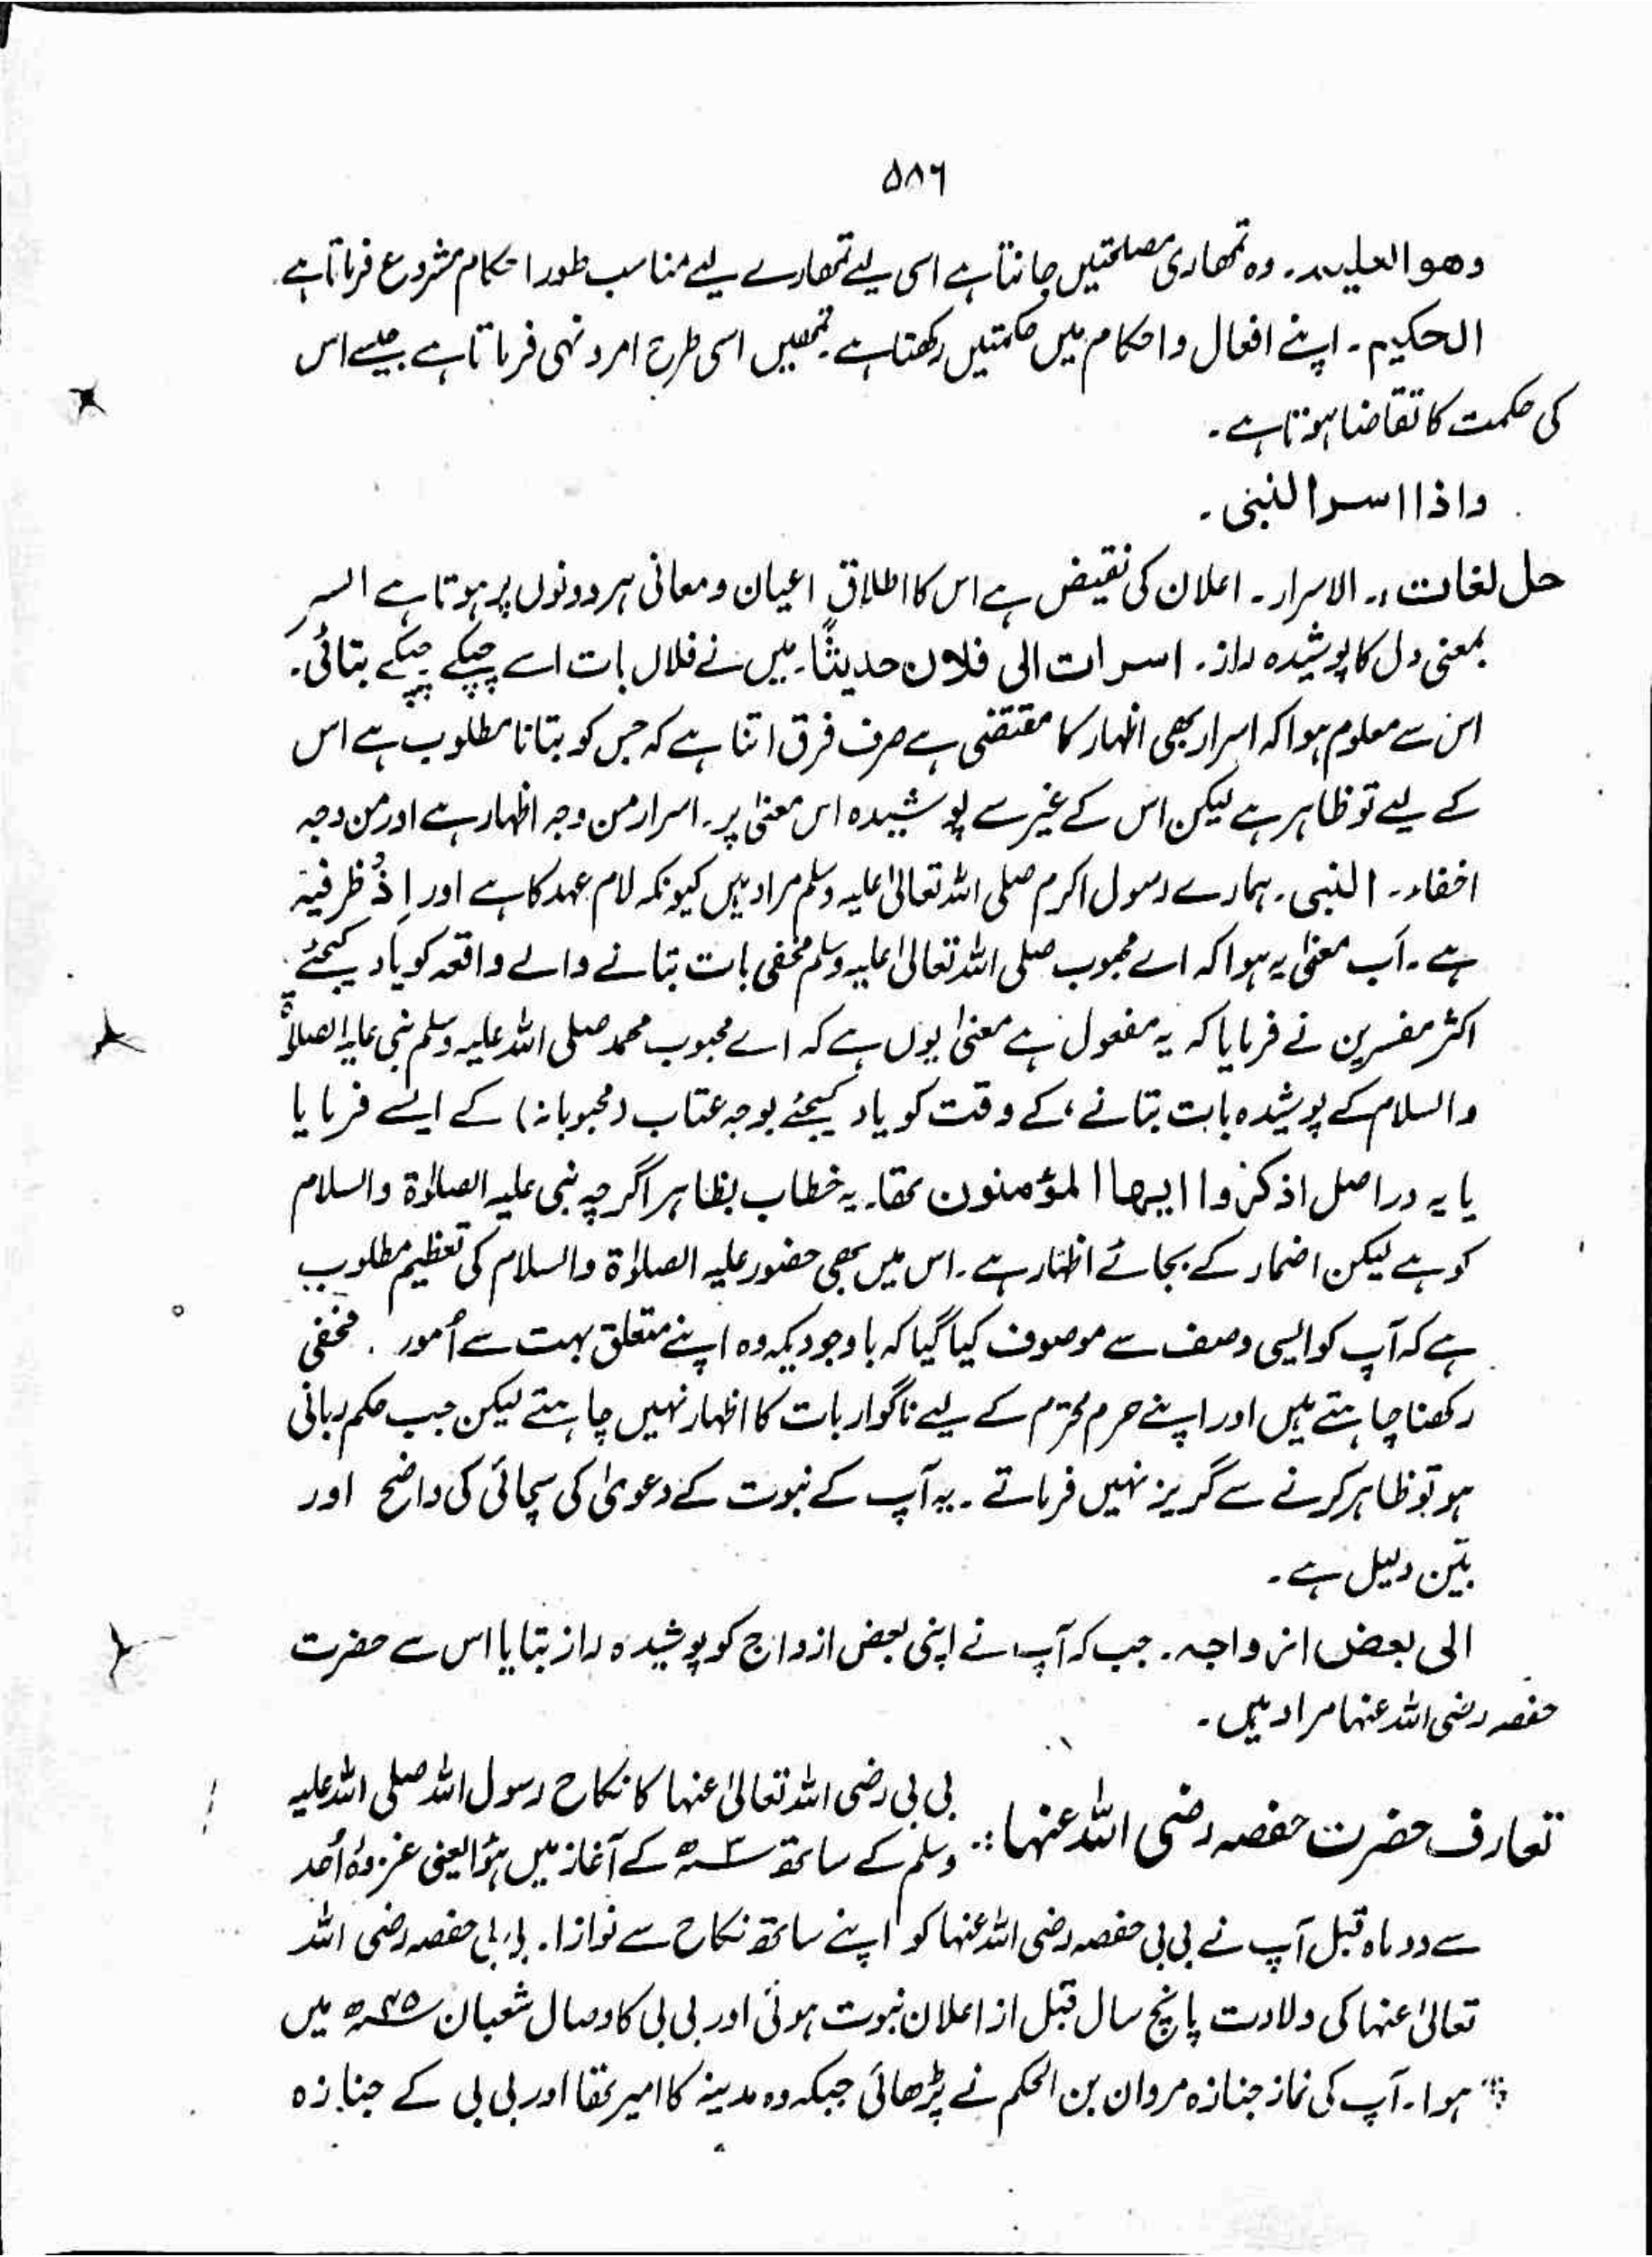 ۵۸۶
وھو العلیم۔ وہ تمھاری مصلحتیں جانتا ہے اسی لیے تمھارے لیے مناسب طور احکام مشروع فرماتا ہے۔
الحکیم۔ اپنے افعال و احکام میں حکمتیں رکھتا ہے۔ تمھیں اسی طرح امر و نہی فرماتا ہے جیسے اس
کی حکمت کا تقاضا ہوتا ہے۔
واذا اسر النبی۔
حل لغات:۔ الاسرار۔ اعلان کی نقیض ہے اس کا اطلاق اعیان و معانی ہر دونوں پر ہوتا ہے السر
بمعنی دل کا پوشیدہ راز۔ اسرات الی فلان حدیثًا۔ میں نے فلاں بات اسے چپکے چپکے بتائی۔
اس سے معلوم ہوا کہ اسرار بھی اظہار کا مقتضی ہے صرف فرق اتنا ہے کہ جس کو بتانا مطلوب ہے اس
کے لیے تو ظاہر ہے لیکن اس کے غیر سے پوشیدہ اس معنیٰ پر۔ اسرار من وجہ اظہار ہے اور من وجہ
اخفاء۔ النبی۔ ہمارے رسول اکرم صلی اللہ تعالیٰ علیہ وسلم مراد ہیں کیونکہ لام عہد کا ہے اور اِذْ ظرفیہ
ہے۔ اَب معنیٰ یہ ہوا کہ اے محبوب صلی اللہ تعالیٰ علیہ وسلم مخفی بات بتانے والے واقعہ کو یاد کیجئے۔
اکثر مفسرین نے فرمایا کہ یہ مفعول ہے معنیٰ یوں ہے کہ اے محبوب محمد صلی اللہ علیہ وسلم نبی علیہ الصلوٰۃ
والسلام کے پوشیدہ بات بتانے، کے وقت کو یاد کیجئے بوجہ عتاب (محبوبانہ) کے ایسے فرمایا
یا یہ دراصل اذکروا ایہا المؤمنون تھا۔ یہ خطاب بظاہر اگرچہ نبی علیہ الصلوٰۃ والسلام
کو ہے لیکن اضمار کے بجائے اظہار ہے۔ اس میں بھی حضور علیہ الصلوٰۃ والسلام کی تعظیم مطلوب
ہے کہ آپ کو ایسی وصف سے موصوف کیا گیا کہ باوجودیکہ وہ اپنے متعلق بہت سے اُمور مخفی
رکھنا چاہتے ہیں اور اپنے حرم محترم کے لیے ناگوار بات کا اظہار نہیں چاہتے لیکن جب حکم ربانی
ہو تو ظاہر کرنے سے گریز نہیں فرماتے۔ یہ آپ کے نبوت کے دعویٰ کی سچائی کی واضح اور
بیّن دلیل ہے۔
الی بعض ازواجہ۔ جب کہ آپ نے اپنی بعض ازواج کو پوشیدہ راز بتایا اس سے حضرت
حفصہ رضی اللہ عنہا مراد ہیں۔
تعارف حضرت حفصہ رضی اللہ عنہا:۔ بی بی رضی اللہ تعالیٰ عنہا کا نکاح رسول اللہ صلی اللہ علیہ
وسلم کے ساتھ ۳ھ کے آغاز میں ہؤا یعنی غزوۂ اُحد
سے دو ماہ قبل آپ نے بی بی حفصہ رضی اللہ عنہا کو اپنے ساتھ نکاح سے نوازا۔ بی بی حفصہ رضی اللہ
تعالیٰ عنہا کی ولادت پانچ سال قبل از اعلان نبوت ہوئی اور بی بی کا وصال شعبان ۴۵ھ میں
ہوا۔ آپ کی نماز جنازہ مروان بن الحکم نے پڑھائی جبکہ وہ مدینہ کا امیر تھا اور بی بی کے جنازہ